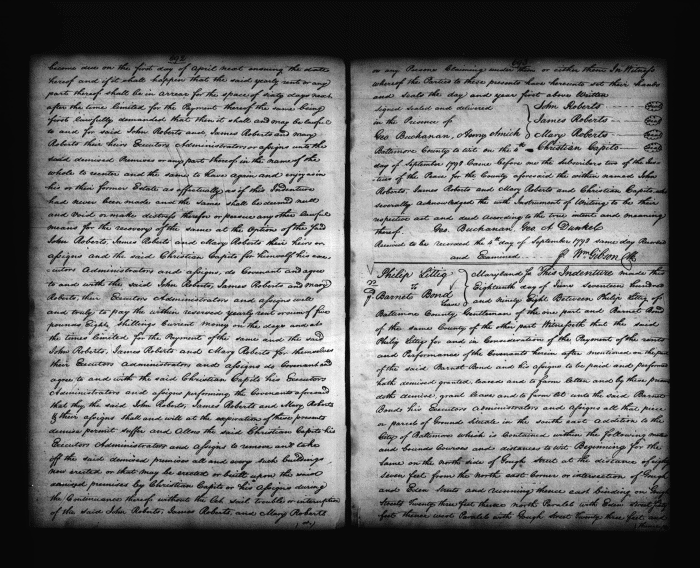 become due on the first day of April next ensuing the date
hereof and if it shall happen that the said yearly rent or any
part thereof shall be in arrear for the space of sixty days next
after the time limited for the Payment thereof the same being
first lawfully demanded that then it shall and may be lawful
to and for said John Roberts and James Roberts and Mary
Roberts their heirs Executors Administrators or assigns into the
said demised Premises or any part thereof in the name of the
whole to reenter and the same to have again and enjoy as in
his or their former Estate as effectually as if this Indenture
had never been made and the same shall be deemed null
and void or make distress therefor or pursue any other lawful
means for the recovery of the same at the option of the said
John Roberts, James Roberts and Mary Roberts their heirs or
assigns and the said Christian Capito for himself his exe
cutors Administrators and assigns, do Covenant and agree
to and with the said John Roberts, James Roberts and Mary
Roberts, their Executors Administrators and assigns well
and truly to pay the within reserved yearly rent or sum of five
pounds Eight Shillings Current money on the days and at
the times limited for the Payment of the same and the said
John Roberts, James Roberts and Mary Roberts for themselves
their Executors Administrators and assigns do Covenant and
agree to and with the said Christian Capito his Executors
Administrators and assigns performing the Covenants aforesaid
that they the said John Roberts, James Roberts and Mary Roberts
& their assigns shall and will at the expiration of these presents
demise permit suffer and Allow the said Christian Capito his
Executors Administrators and assigns to remove and take
off the said demised premises all and any such buildings,
now erected or that may be erected or built upon the said
demised premises by Christian Capito or his assigns during
the Continuance thereof without the Let suit trouble or interruption
of the said John Roberts, James Roberts, and Mary Roberts
or any Persons Claiming under them or either them In Witness
whereof the Parties to these presents have hereunto set their hands
and seals the day and year first above Written
signed sealed and delivered John Roberts
in the Presence of James Roberts
Geo. Buchanan, Henry Amich Mary Roberts
Baltimore County to wit on the 6th Christian Capito
day of September 1798 Came before me the subscribers two of the Jus
tices of the Peace for the County aforesaid the within named John
Roberts, James Roberts and Mary Roberts and Christian Capito and
severally acknowledged the with Instrument of Writing to be their
respective act and deed According to the true intent and meaning
thereof. Geo. Buchanan, Geo A Dunkel
Received to be recorded the 8th day of September 1798 same day Recorded
and Examined. Wm Gibson Clk
Philip Littig
to
Barnet Bond
Lease
Maryland ss This Indenture made this
Eighteenth day of June seventeen hundred
and ninety Eight Between Philip Littig of
Baltimore County Gentleman of the one part and Barnet Bond
of the same County of the other part Witnesseth that the said
Philip Littig for and in Consideration of the Payment of the rents
and Performance of the Covenants herein after mentioned on the part
of the said Barnet Bond and his assigns to be paid and performed
hath demised granted, leased and to farm letten and by these presents
doth demise, grant lease and to farm let unto the said Barnet
Bond his Executors administrators and assigns all that piece
or parcel of Ground situate in the south east addition to the
City of Baltimore which is Contained within the following metes
and bounds Courses and distances to wit. Beginning for the
same on the north side of Gough street at the distance of eighty
seven feet from the north east corner or intersection of Gough
and Eden streets and running thence east binding on Gough
Street twenty three feet thence north Parallel with Eden street
feet thence west Parallel with Gough street twenty three feet and